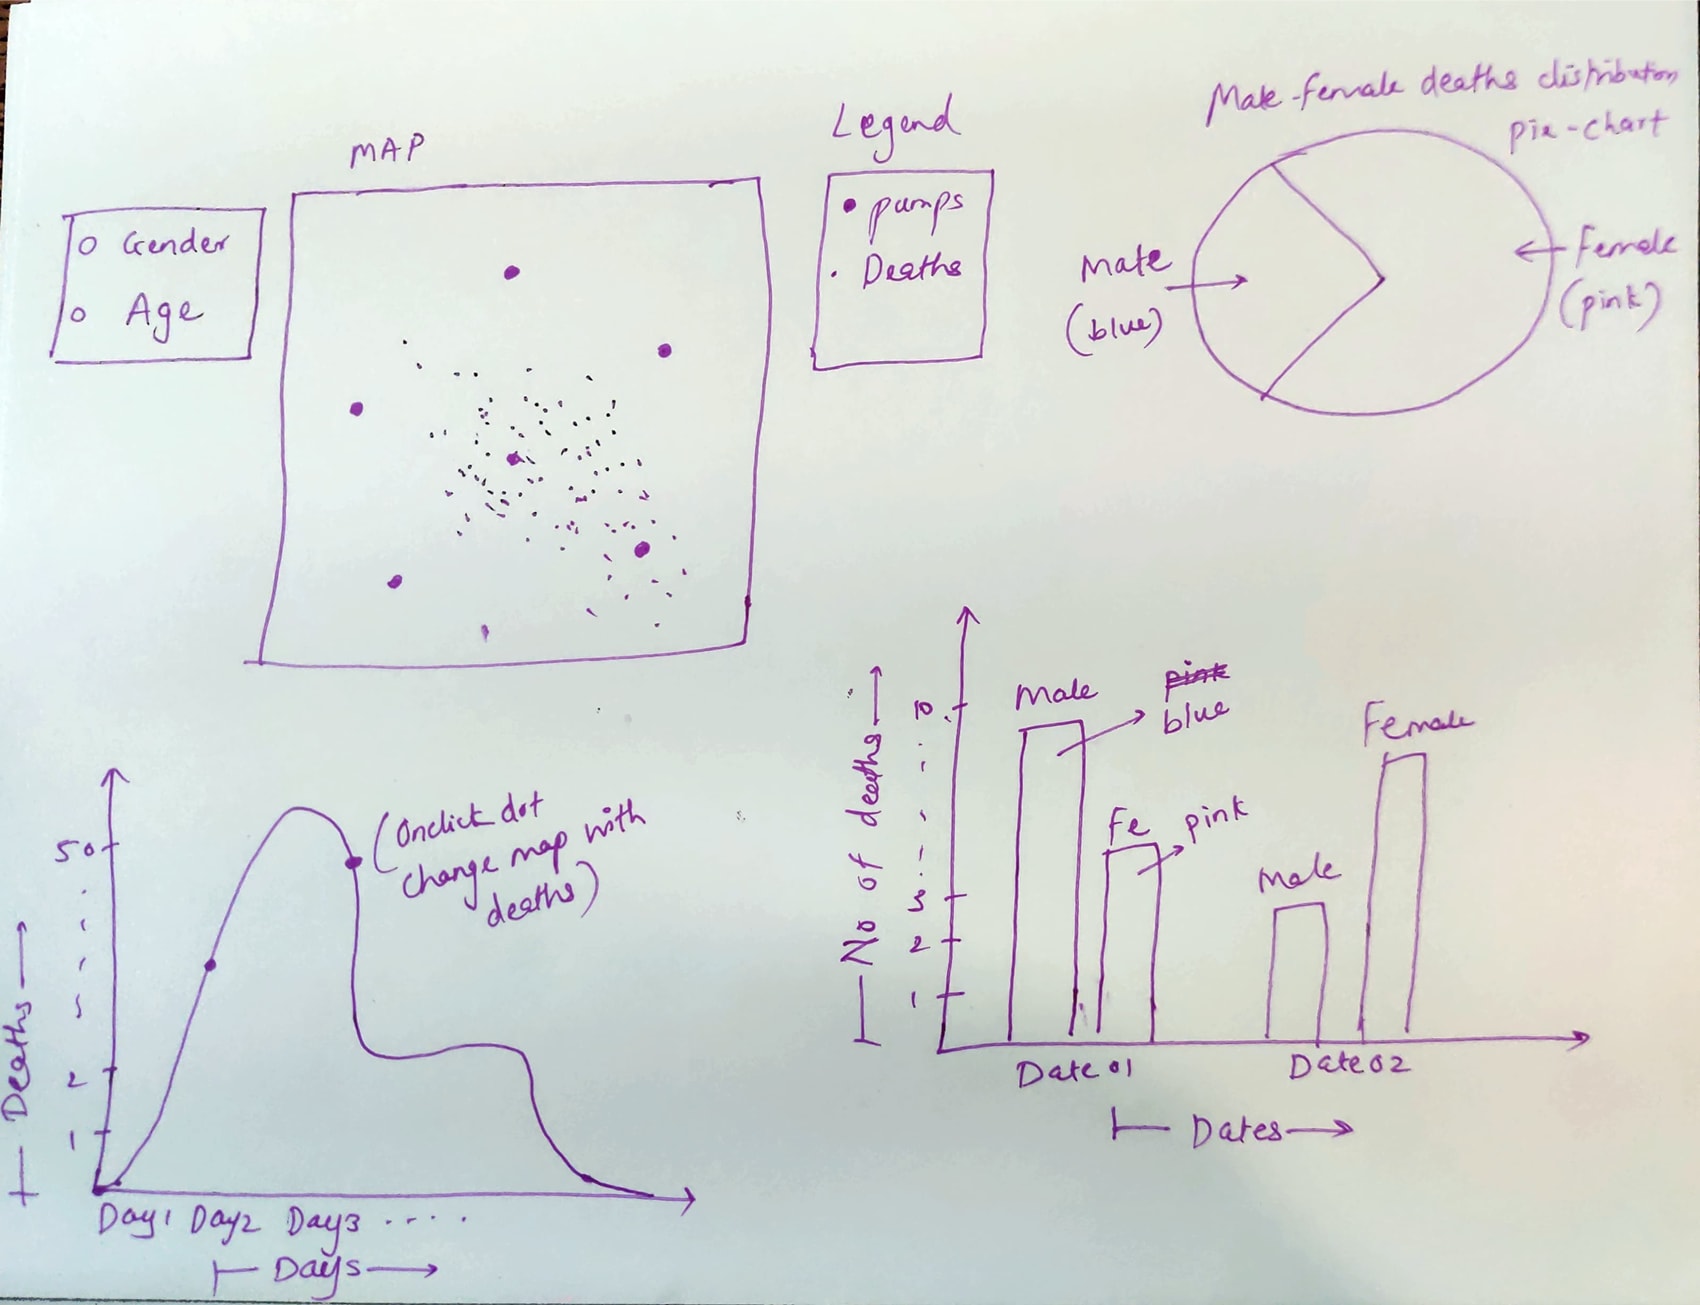 MAP
Gender
Age
Legend
pumps
Deaths
Male-female deaths distribution
pie-chart
Male
(blue)
Female
(pink)
50
2
1
Deaths
(Onclick dot
change map with
deaths)
Day1 Day2 Day3 ....
Days
No of deaths
10
3
2
1
Male
pink
blue
Fe
pink
Male
Female
Date 01
Date 02
Dates